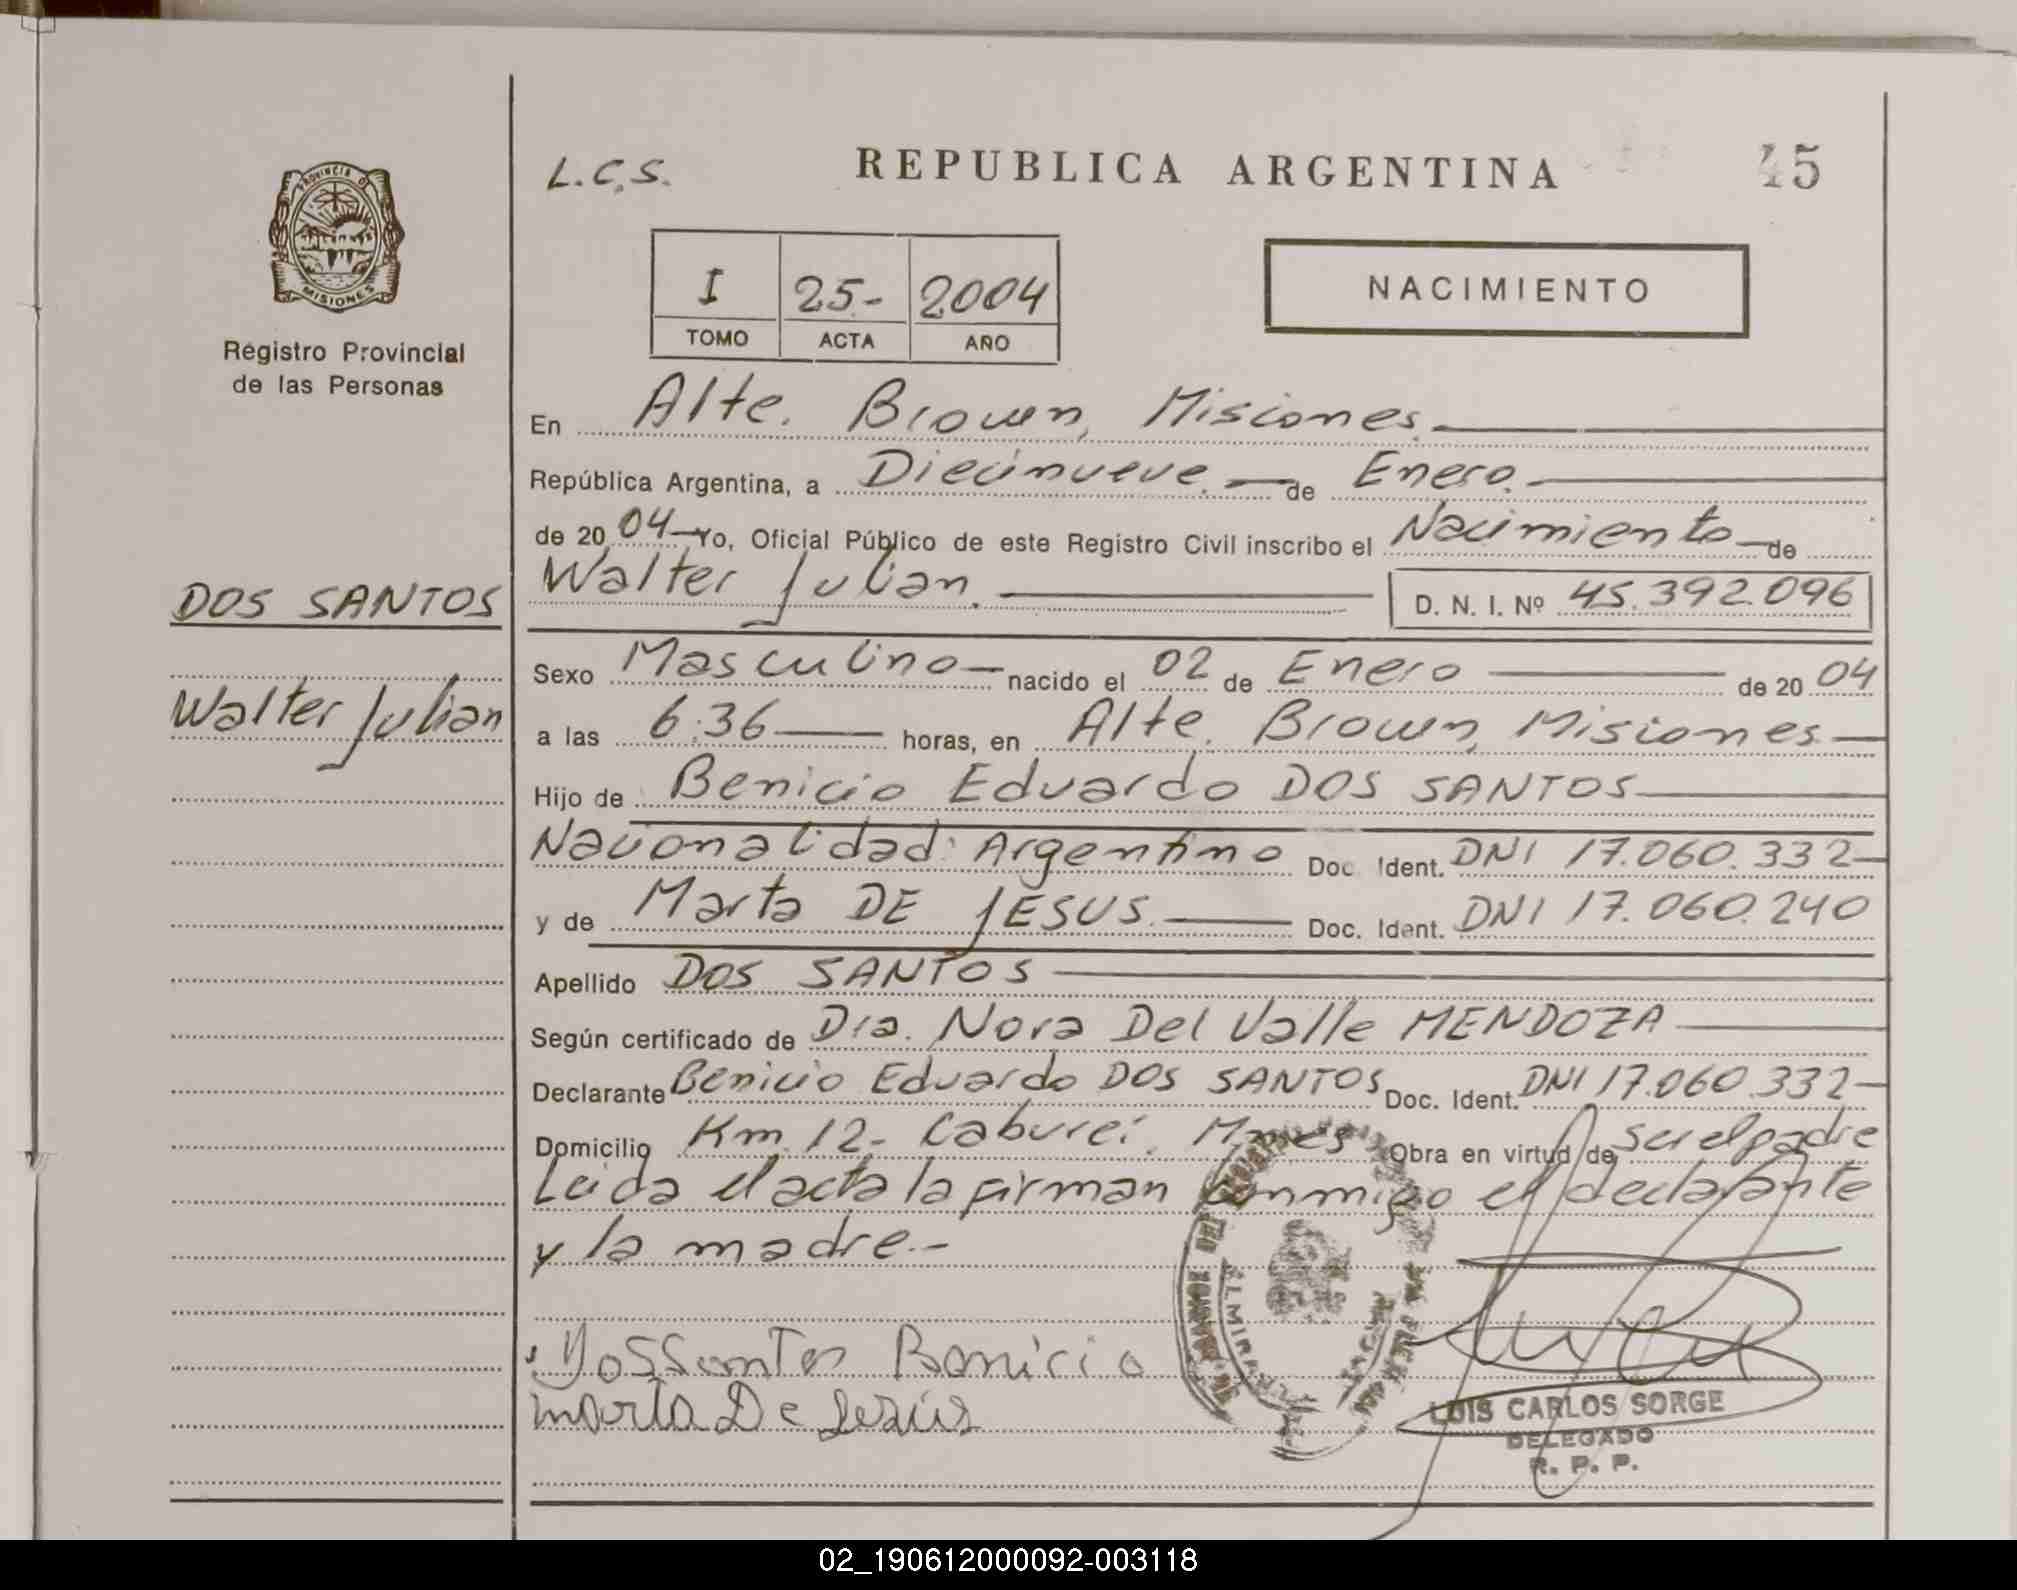 PROVINCIA DE
MISIONES
Registro Provincial
de las Personas
DOS SANTOS
Walter Julian
L.C.S.
REPUBLICA ARGENTINA
45
I 25.- 2004
TOMO ACTA AÑO
NACIMIENTO
En Alte. Brown, Misiones.
República Argentina, a Diecinueve. de Enero.
de 2004 Yo, Oficial Público de este Registro Civil inscribo el Nacimiento de
Walter Julian. D. N. I. Nº 45.392.096
Sexo Masculino nacido el 02 de Enero de 2004
a las 6:36 horas, en Alte. Brown, Misiones
Hijo de Benicio Eduardo DOS SANTOS
Nacionalidad: Argentino Doc. Ident. DNI 17.060.332
y de Marta DE JESUS. Doc. Ident. DNI 17.060.240
Apellido DOS SANTOS
Según certificado de Dra. Nora Del Valle MENDOZA
Declarante Benicio Eduardo DOS SANTOS Doc. Ident. DNI 17.060.332
Domicilio Km. 12- Caburei, Mnes Obra en virtud de ser el padre
Leida el acta la firman conmigo el declarante
y la madre.-
Dos Santos Benicio
Marta De Jesús
ALMIRANTE
LUIS CARLOS SORGE
DELEGADO
R. P. P.
02_190612000092-003118